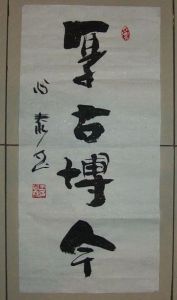 厚古博今